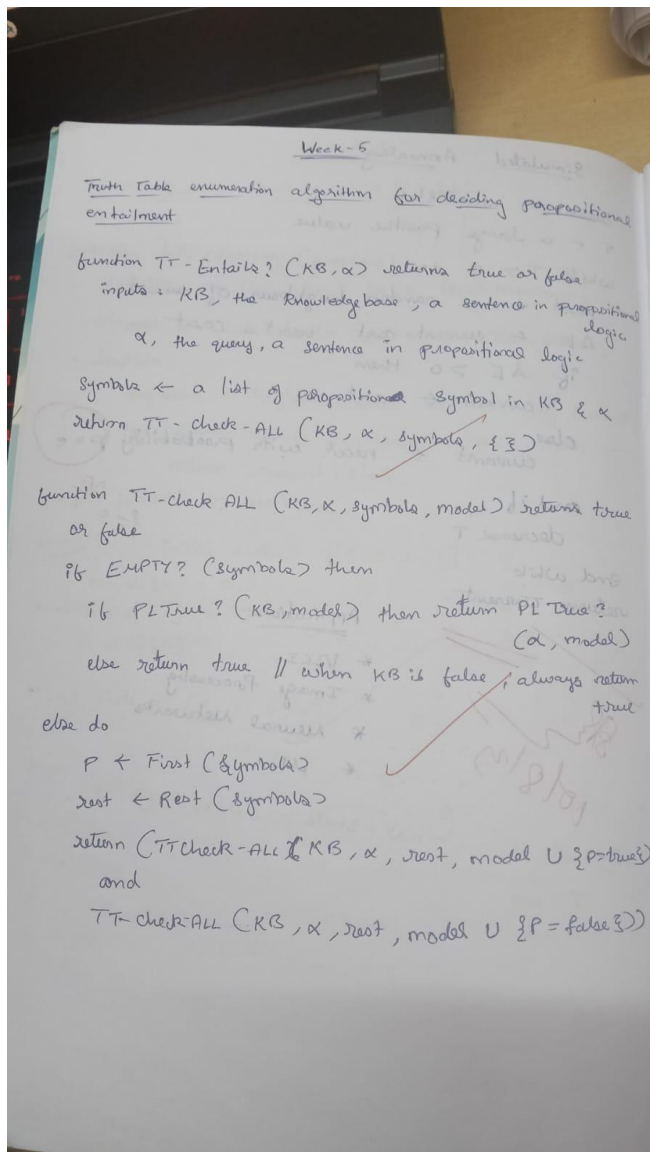 Week-5
Truth Table enumeration algorithm for deciding propositional
entailment
function TT-Entails? (KB, α) returns true or false
inputs: KB, the knowledgebase, a sentence in propositional
logic
α, the query, a sentence in propositional logic
Symbols ← a list of proposition Symbol in KB & α
return TT-check-ALL (KB, α, symbols, { })
function TT-check ALL (KB, α, symbols, model) returns true
or false
if EMPTY? (symbols) then
if PLTrue? (KB, model) then return PL True?
(α, model)
else return true // when KB is false, always return
true
else do
P ← First (Symbols)
rest ← Rest (Symbols)
return (TTCheck-ALL ( KB, α, rest, model ∪ {P=true})
and
TT-check-ALL (KB, α, rest, model ∪ {P = false}))